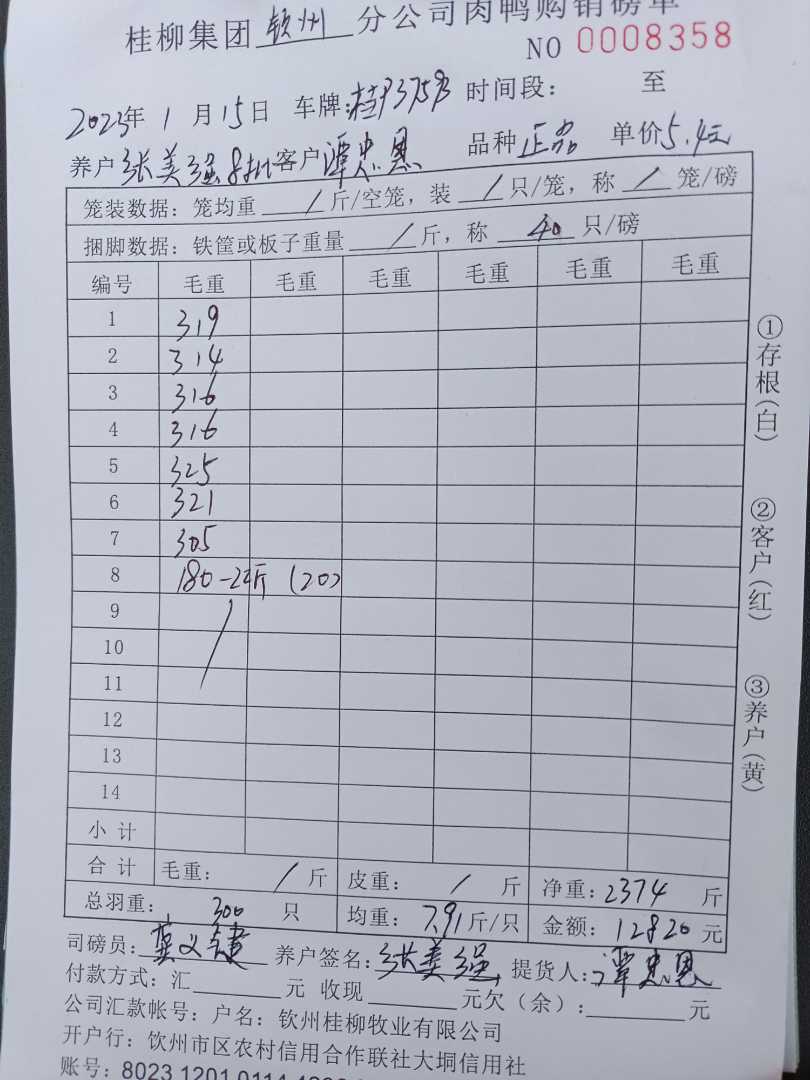 桂柳集团 钦州 分公司肉鸭购销磅单
NO 0008358
2023年 1 月 15日 车牌: 时间段: 至
养户 张美强8批 客户 覃忠恩 品种 正品 单价 5.4元
笼装数据: 笼均重 / 斤/空笼, 装 / 只/笼, 称 / 笼/磅
捆脚数据: 铁筐或板子重量 / 斤, 称 40 只/磅
编号 毛重 毛重 毛重 毛重 毛重 毛重
1 319
2 314
3 316
4 316
5 325
6 321
7 305
8 180-22斤 (20)
9
10
11
12
13
14
小计
合计 毛重: / 斤 皮重: / 斤 净重: 2374 斤
总羽重: 300 只 均重: 7.91 斤/只 金额: 12820 元
司磅员: 养户签名: 张美强 提货人: 覃忠恩
付款方式: 汇 元 收现 元欠(余): 元
公司汇款帐号: 户名: 钦州桂柳牧业有限公司
开户行: 钦州市区农村信用合作联社大垌信用社
账号: 8023 1201 0114
①存根(白)
②客户(红)
③养户(黄)